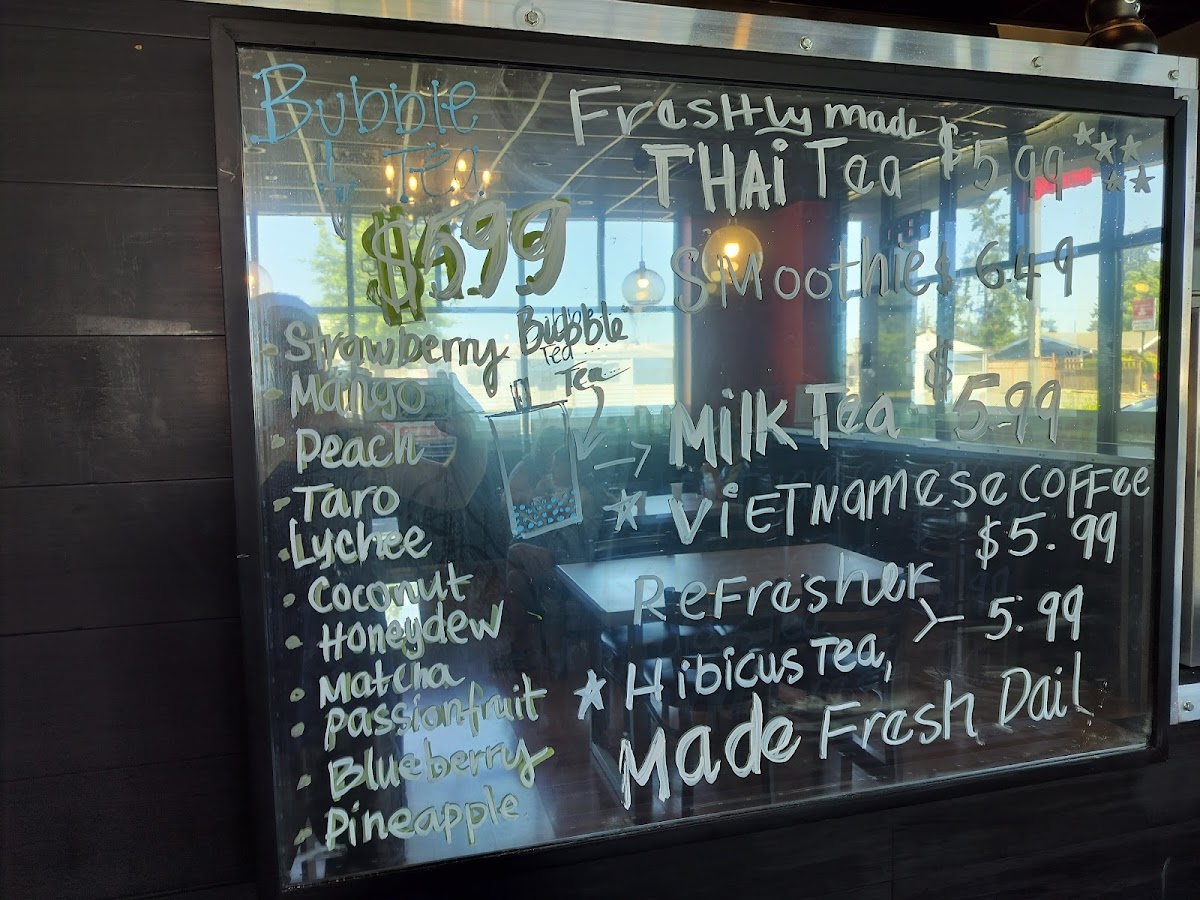 Bubble
Tea
$5.99
Strawberry
Mango
Peach
Taro
Lychee
Coconut
Honeydew
Matcha
Passionfruit
Blueberry
Pineapple
Bubble
Tea
Tea
Freshly made
THAi Tea $5.99
Smoothie $6.49
Milk Tea $5.99
VIETNAMese COFFee
$5.99
ReFresher
Hibicus Tea, 5.99
Made Fresh Dail